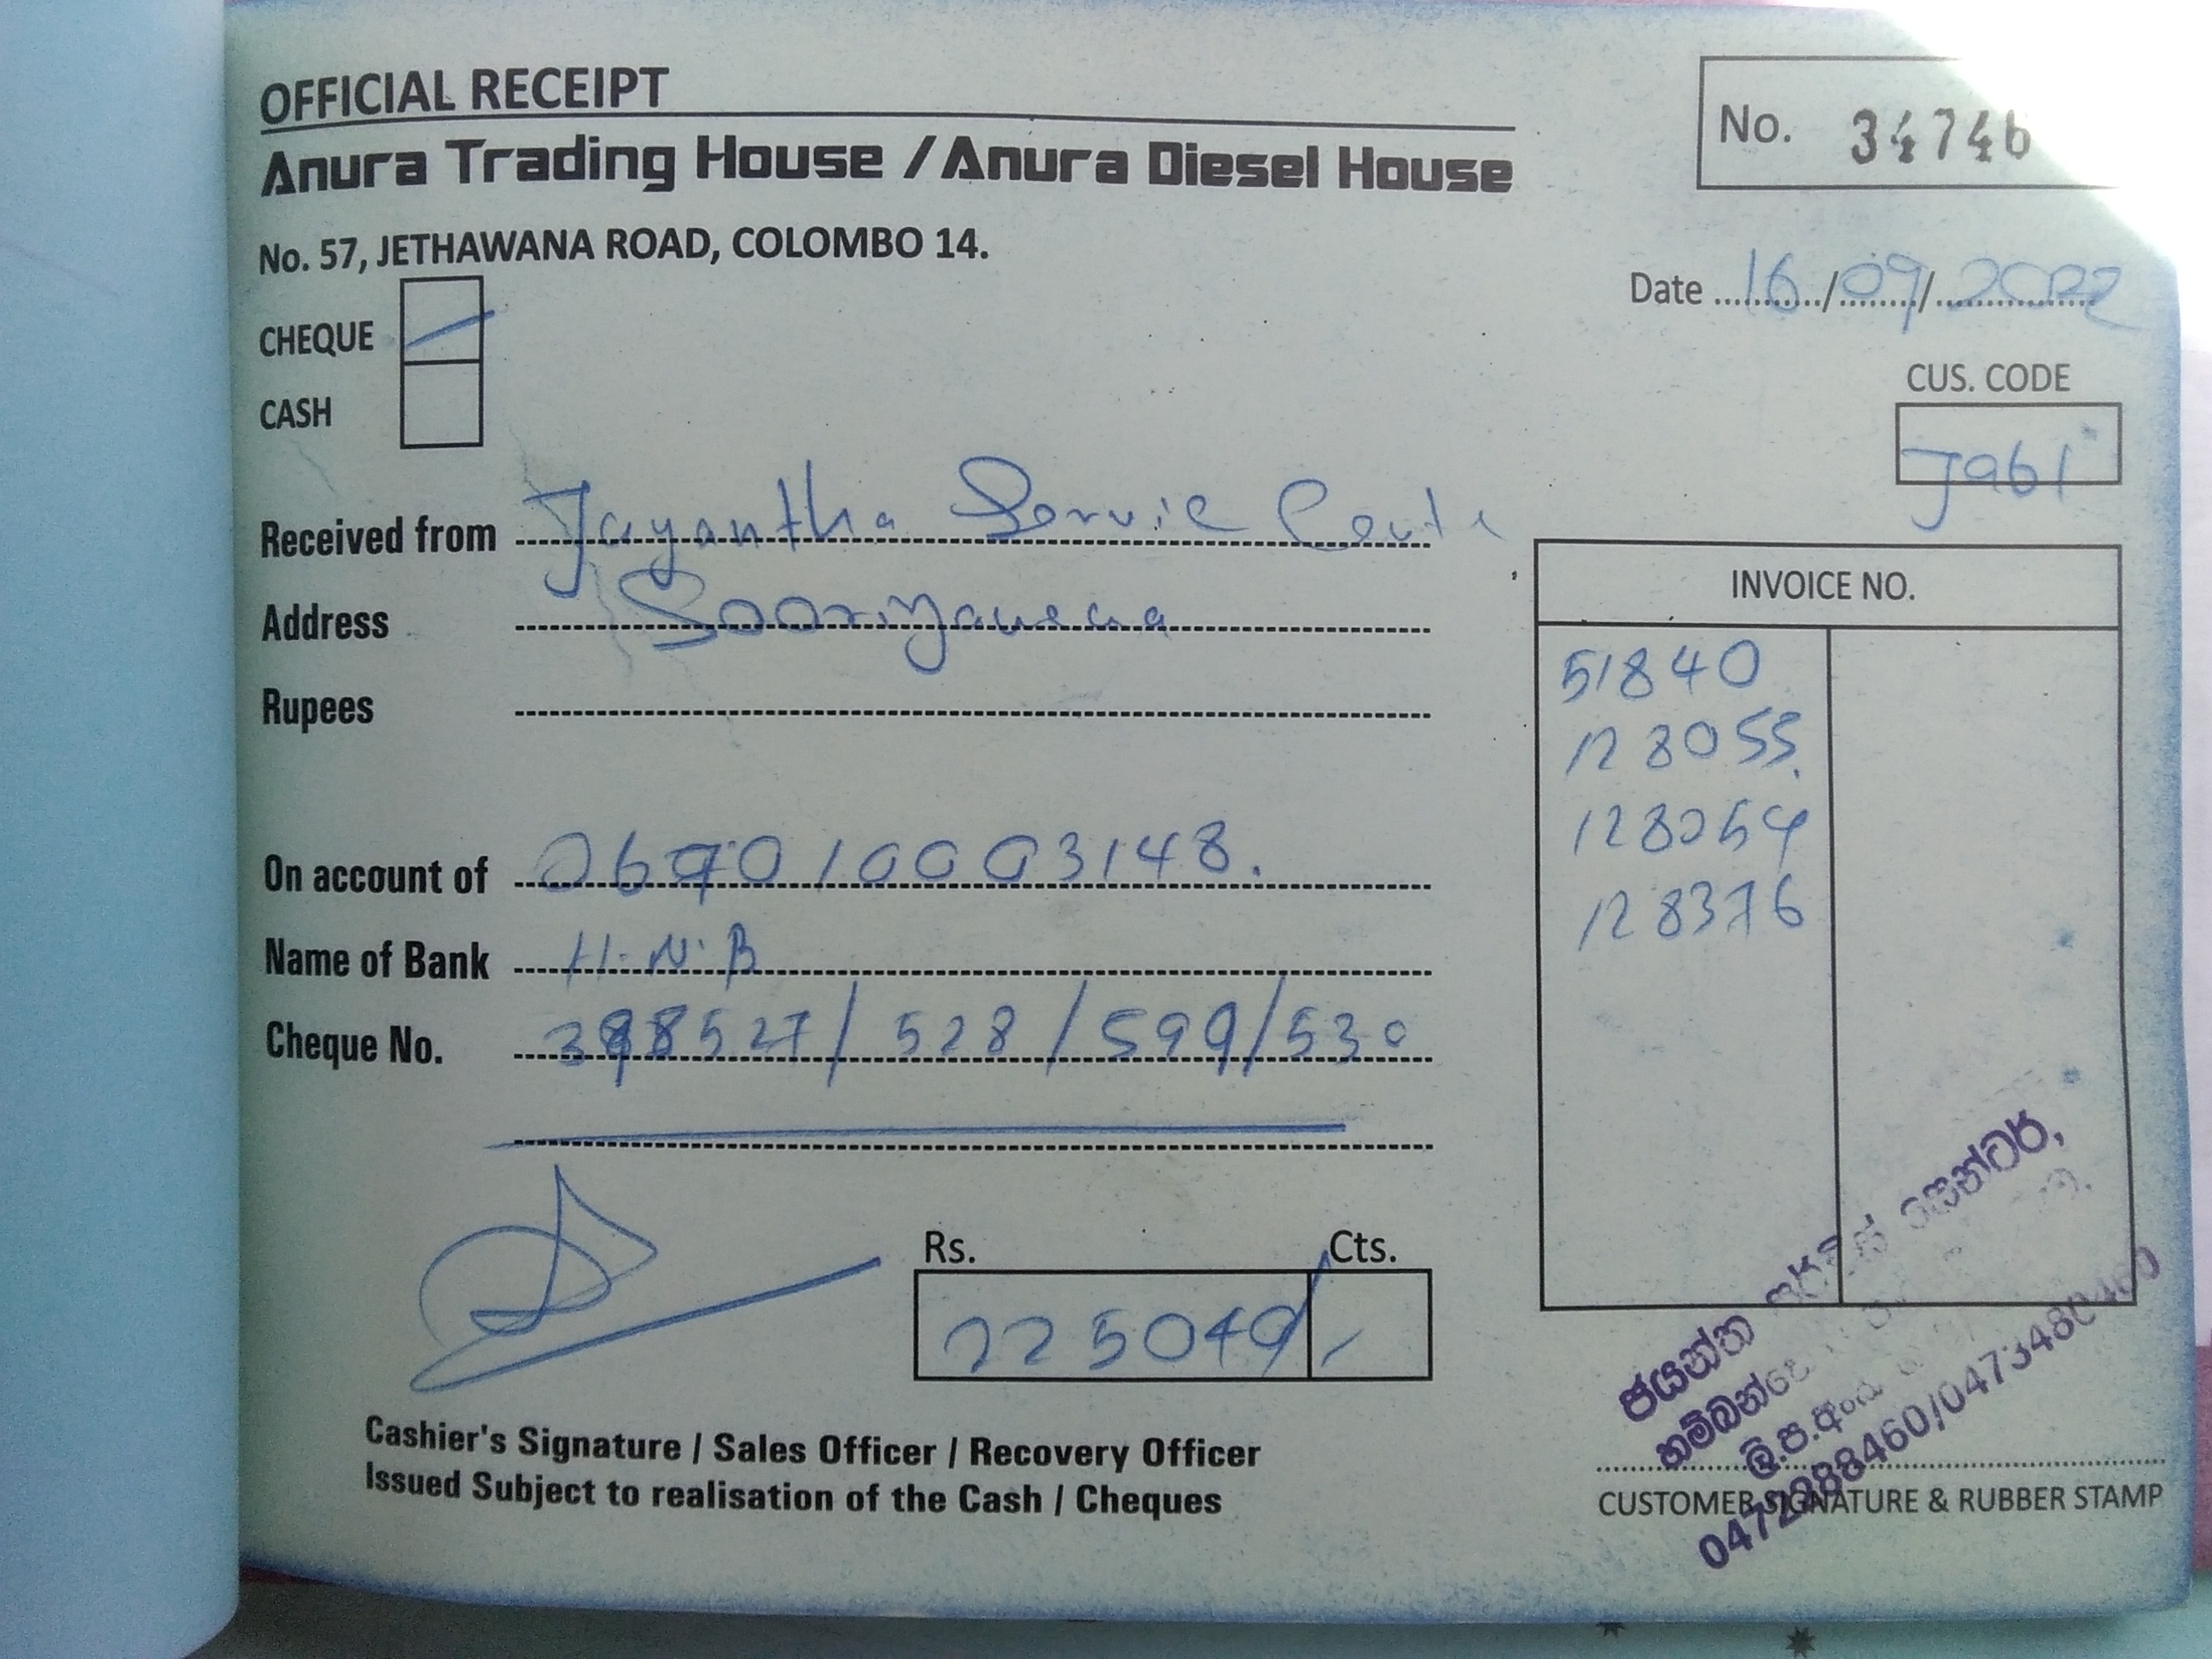 OFFICIAL RECEIPT
Anura Trading House / Anura Diesel House
No. 34746
No. 57, JETHAWANA ROAD, COLOMBO 14.
Date 16/09/2022
CHEQUE
CASH
CUS. CODE
Ja61
Received from Jayantha Service
Address
Rupees
INVOICE NO.
51840
128055
128054
128376
On account of 069010003148.
Name of Bank H.N.B
Cheque No. 528/599/530
Rs. Cts.
225049/-
Cashier's Signature / Sales Officer / Recovery Officer
Issued Subject to realisation of the Cash / Cheques
ජයන්ත සර්විස් සෙන්ටර්,
CUSTOMER SIGNATURE & RUBBER STAMP